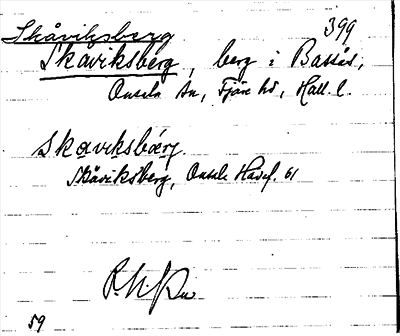 Skåviksberg 399
Skaviksberg, berg i Bassås,
Onsala sn, Fjäre hd, Hall. l.
skaviksbärg
Skåviksberg, Onsala Havsf. 61
59